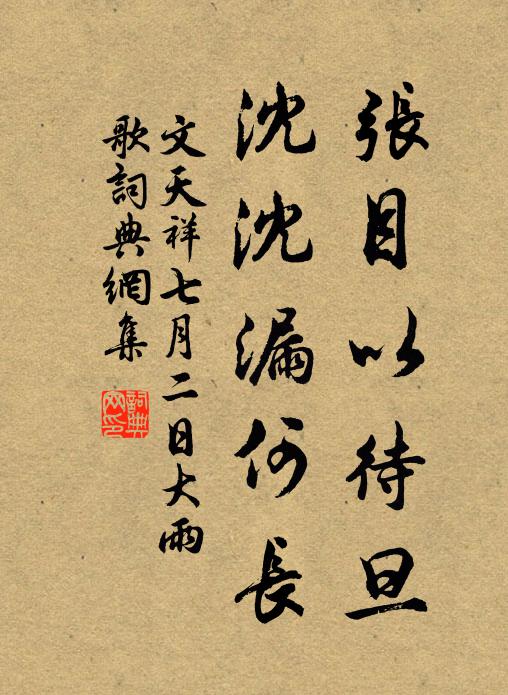 張目以待旦
沈沈漏何長
文天祥七月二日大雨
歌詞典網集
詞典
网印